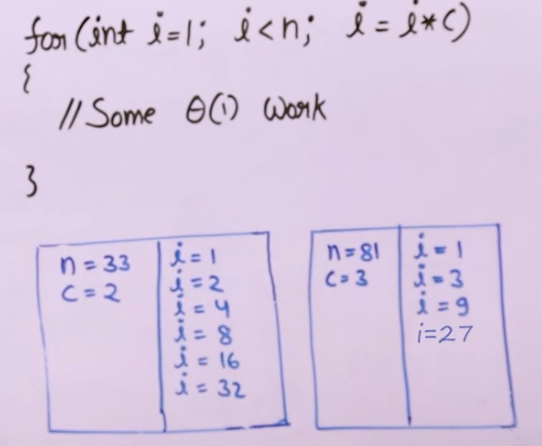 for(int i=1; i<n; i=i*c)
{
//Some θ(1) Work
}
n = 33
c = 2
i = 1
i = 2
i = 4
i = 8
i = 16
i = 32
n = 81
c = 3
i = 1
i = 3
i = 9
i=27